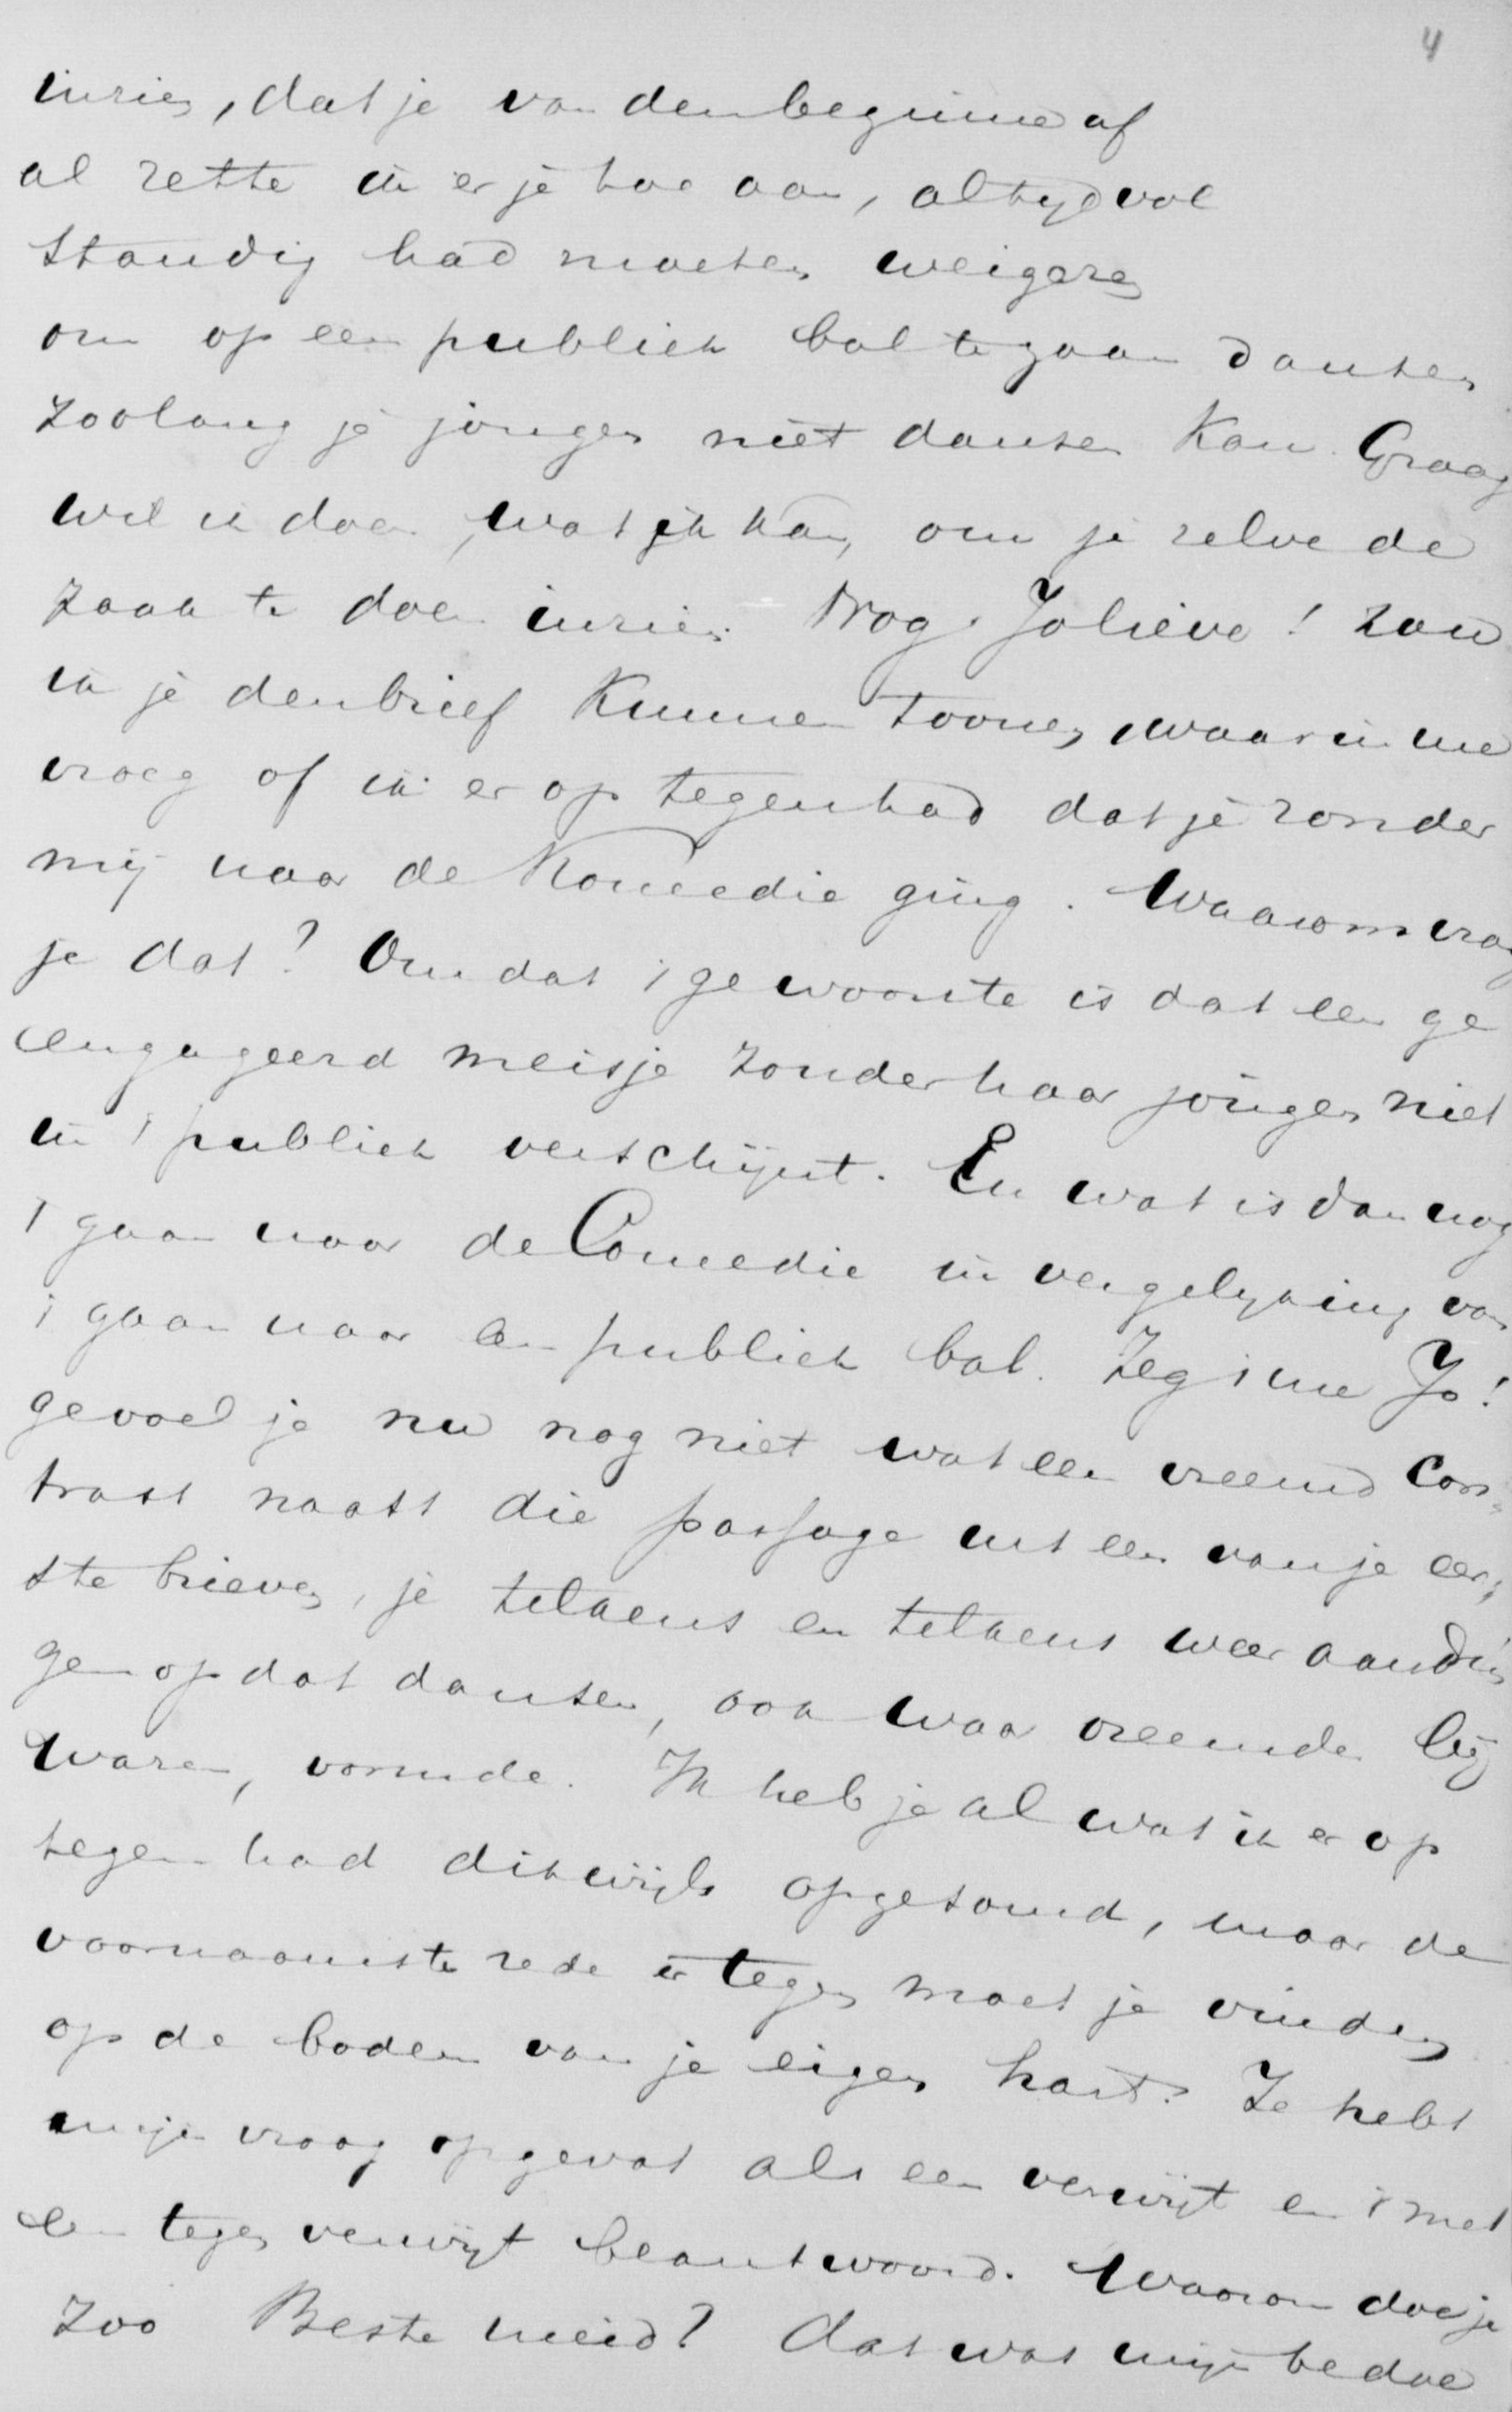 4
inzien, dat je van den beginne af
al zette ik er je toe aan, altyd vol
standig had moeten weigeren
om op een publiek bal te gaan dansen
zoolang je jongen niet dansen kan. Graag
wil ik doen, wat ik kan, om je zelve de
zaak te doen inzien. Nog Jolieve! zou
ik je den brief kunnen toonen, waarin me
vroeg of ik er op tegenhad dat je zonder
mij naar de Komedie ging. Waarom vroeg
je dat? Omdat 't gewoonte is dat een ge
engageerd meisje zonder haar jongen niet
in 't publiek verschijnt. En wat is dan nog
't gaan naar de Comedie in vergelyking van
't gaan naar een publiek bal. Zeg 't me Jo!
gevoel je nu nog niet wat een vreemd con-
trast naast die passage uit een van je eer-
ste brieven, je telkens en telkens weer aandrin
gen op dat dansen, ook waar vreemden bij
waren, vormde. Ik heb je al wat ik er op
tegen had dikwijls opgesomd, maar de
voornaamste rede er tegen moet je vinden
op de bodem van je eigen hart. Je hebt
mijn vraag opgevat als een verwijt en 't met
een tegenverwijt beantwoord. Waarom doe je
zoo Beste meid? Dat was mijn bedoe